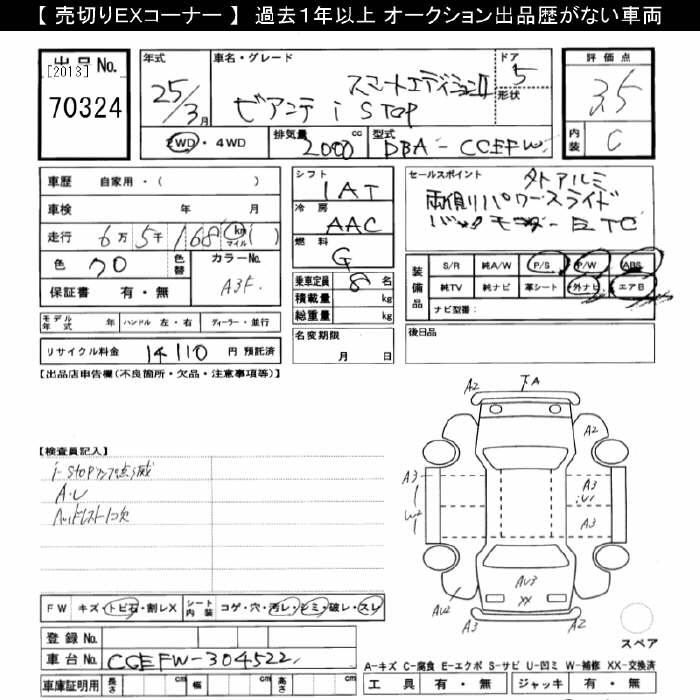 【 売切りEXコーナー 】 過去1年以上 オークション出品歴がない車両
出品 No.
[2013]
70324
年式
25/3月
車名・グレード
スマートエディションII
ビアンテ i STOP
ドア
5
形状
評価点
3.5
内装
C
2WD・4WD
排気量
2000 cc
型式
DBA-CCEFW
車歴 自家用・( )
車検 年 月
走行 6万5千168 km マイル ( )
色 クロ
色替
カラーNo.
A3F
保証書 有・無
シフト
1AT
冷房
AAC
燃料
G
乗車定員 8 名
積載量 kg
総重量 kg
セールスポイント 外アルミ
両側パワースライド
バックモニター ETC
装備品
S/R 純A/W P/S P/W ABS
純TV 純ナビ 革シート 外ナビ エアB
ナビ型番:
モデル年式 年 ハンドル 左・右 ディーラー・並行
リサイクル料金 14110 円 預託済
名変期限
月 日
後日品
【出品店申告欄(不良箇所・欠品・注意事項等)】
【検査員記入】
i-stopランプ点滅
A・U
ヘッドレスト1コ欠
A2
下A
A2
A3
A3
W2
A3
AU3
XX
AU2
A3
A2
FW キズ・トビ石・割レX
シート内装 コゲ・穴・汚レ・シミ・破レ・スレ
登録 No.
車台 No. CCEFW-304522
車庫証明用 長さ cm 幅 cm 高さ cm
スペア
A-キズ C-腐食 E-エクボ S-サビ U-凹ミ W-補修 XX-交換済
工具 有・無 ジャッキ 有・無